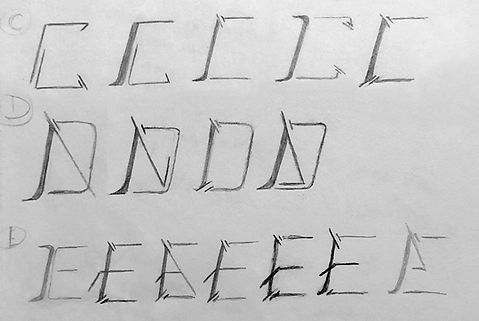 C C C C C C
D D D D D
E E E E E E E E